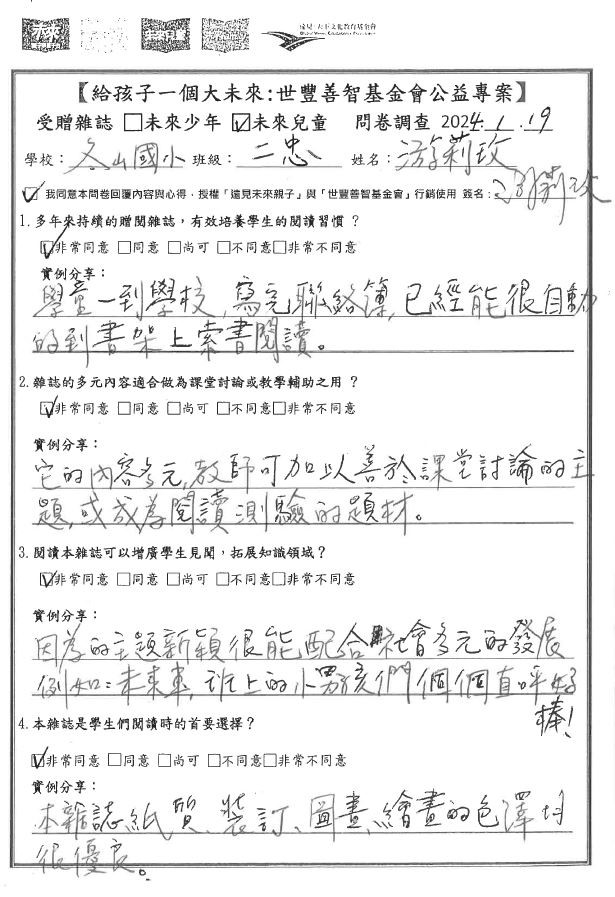 未來
未來兒童
遠見‧天下文化教育基金會
【給孩子一個大未來:世豐善智基金會公益專案】
受贈雜誌 □未來少年 ☑未來兒童 問卷調查 2024.1.19
學校: 冬山國小 班級: 二忠 姓名: 游莉玫
☑ 我同意本問卷回覆內容與心得,授權「遠見未來親子」與「世豐善智基金會」行銷使用 簽名: 游莉玫
1.多年來持續的贈閱雜誌,有效培養學生的閱讀習慣?
☑非常同意 □同意 □尚可 □不同意□非常不同意
實例分享:
學童一到學校,寫完聯絡簿,已經能很自動
的到書架上索書閱讀。
2.雜誌的多元內容適合做為課堂討論或教學輔助之用?
☑非常同意 □同意 □尚可 □不同意□非常不同意
實例分享:
它的內容多元,教師可加以善於課堂討論的主
題,或成為閱讀測驗的題材。
3.閱讀本雜誌可以增廣學生見聞,拓展知識領域?
☑非常同意 □同意 □尚可 □不同意□非常不同意
實例分享:
因為的主題新穎很能配合社會多元的發展
例如:未來車,班上的小男孩們個個直呼好
棒!
4.本雜誌是學生們閱讀時的首要選擇?
☑非常同意 □同意 □尚可 □不同意□非常不同意
實例分享:
本雜誌紙質、裝訂、圖畫、繪畫的色澤均
很優良。